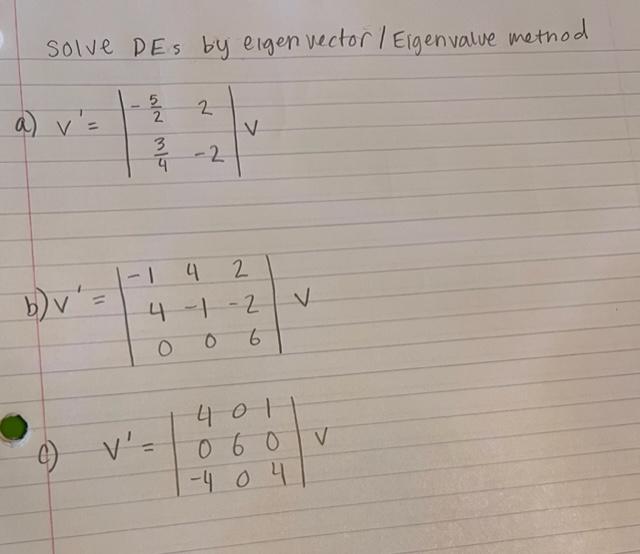 solve DEs by eigenvector/Eigenvalue method
a) v' = | -5/2 2 | v
| 3/4 -2 |
b) v' = | -1 4 2 |
| 4 -1 -2 | v
| 0 0 6 |
c) v' = | 4 0 1 |
| 0 6 0 | v
| -4 0 4 |